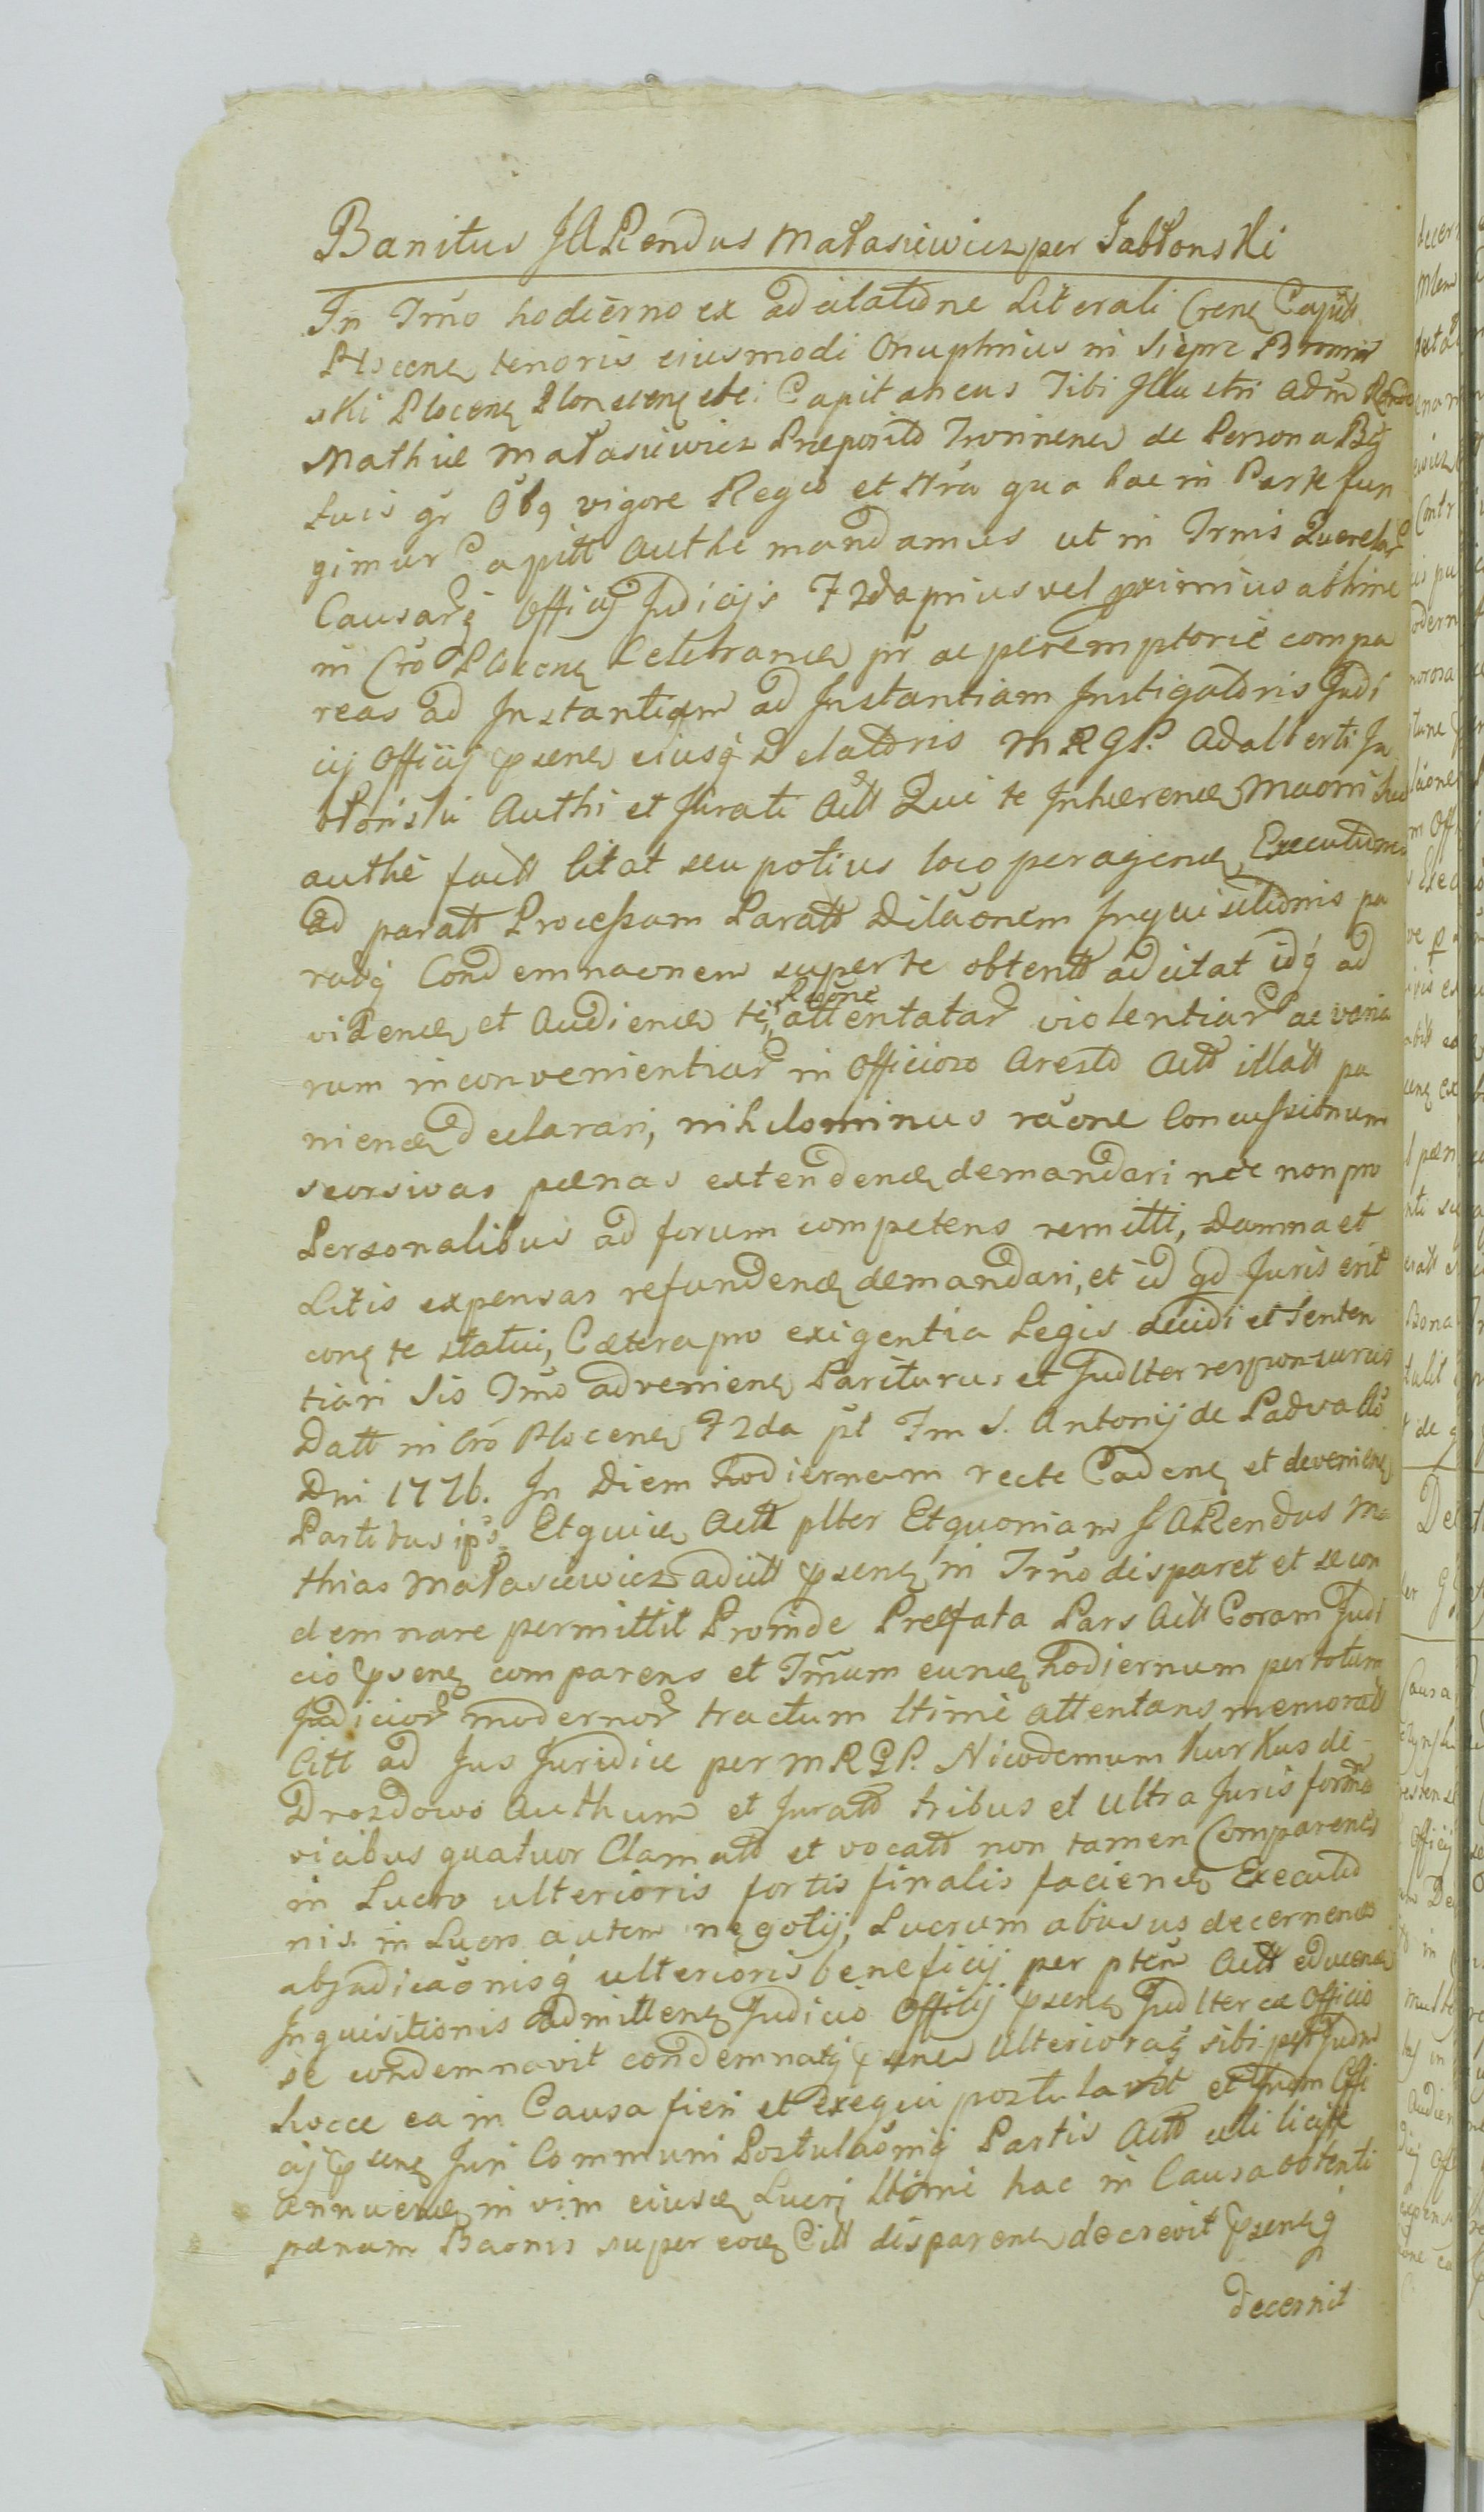 Banitus JARendus Małasiewicz per Jabłonski
In Tmo hodierno ex adcitatione Literali Crenē Capitt
Plocenē tenoris eiusmodi Onuphrius in Sieprc Bromir
ski Plocenē Plonscenē etc: Capitaneus Tibi Illustri adm Rendo
Mathiæ Małasiewicz Præposito Troninenē de Persona Bq
tuis gr Obq vigore Regio et Nra qua hac in Parte fun
gimur Capitt Authe mandamus ut in Trnis Querelar
Causarq Officij Judicijs F 2da prius vel proximius abhinc
in Cro Plocenē Celebranē pr ac peremptorie compa
reas ad Instantiam ad Instantiam Instigatoris Judi
cij Officij psenē eiusq Delatoris MRGP. Adalberti Ja
błonski Authi et Jurati Actt Qui te Inhærenē Maorri
authe factt citat seu potius loco peragenē Executiones
ad paratt Processum Paratt Dilaonem Inquisitionis pa
ratq Condemnaonem super te obtentt adcitat idq ad
videnē et Audienē te Raone attentatar violentiar ac varia
rum inconvenientiar in Officioso Aresto Actt illatt pu
nienē declarari, nihilominus raone Concussionum
seorsivas pænas extendenē demandari nec non pro
Personalibus ad forum competens remitti, Damna et
Litis expensas refundenē demandari, et id qd Juris erit
conē te statui, Cætera pro exigentia Legis decidi et Senten
tiari Sis Tmo advenienē Pariturus et Judlter responsurus
Datt in Cro Plocenē F 2da pt Fm S. Antonij de Padva Ao
Dni 1776. In Diem hodiernam recte Cadenē et devenienē
Partibus ips. Etquiē Actt plter Etquoniam JARendus Ma
thias Małasiewicz adcitt psenē in Trno disparet et se con
demnare permittit Proinde Præfata Pars Actt Coram Judi
cio psenē comparens et Tmum eunē hodiernum per totum
Judicior modernor tractum ltime attentans memoratt
Citt ad Jus Juridice per MRGP. Nicodemum Kurkus de
Drozdowo Authum et Juratt tribus et ultra Juris forma
vicibus quatuor Clamatt et vocatt non tamen Comparenē
in Lucro ulterioris fortis finalis facienē Executio
nis. in Lucro autem negotij, Lucrum abusus decernenē
abjudicaonisq ulterioris beneficij per ptem Actt educenē
Inquisitionis admittenē Judicio Officij psenē Judlter ex Officio
se condemnavit condemnatq psenē Ulterioraq sibi per Judm
hocce ea in Causa fieri et exequi postulavit et Judm Offi
cij psenē Juri Communi Postulaoniq Partis Actt uti licitæ
annuenē in vim eiusē Lucri ltime hac in Causa obtenti
pænam Baonis super eoē Citt disparenē decrevit psenēq
decernit